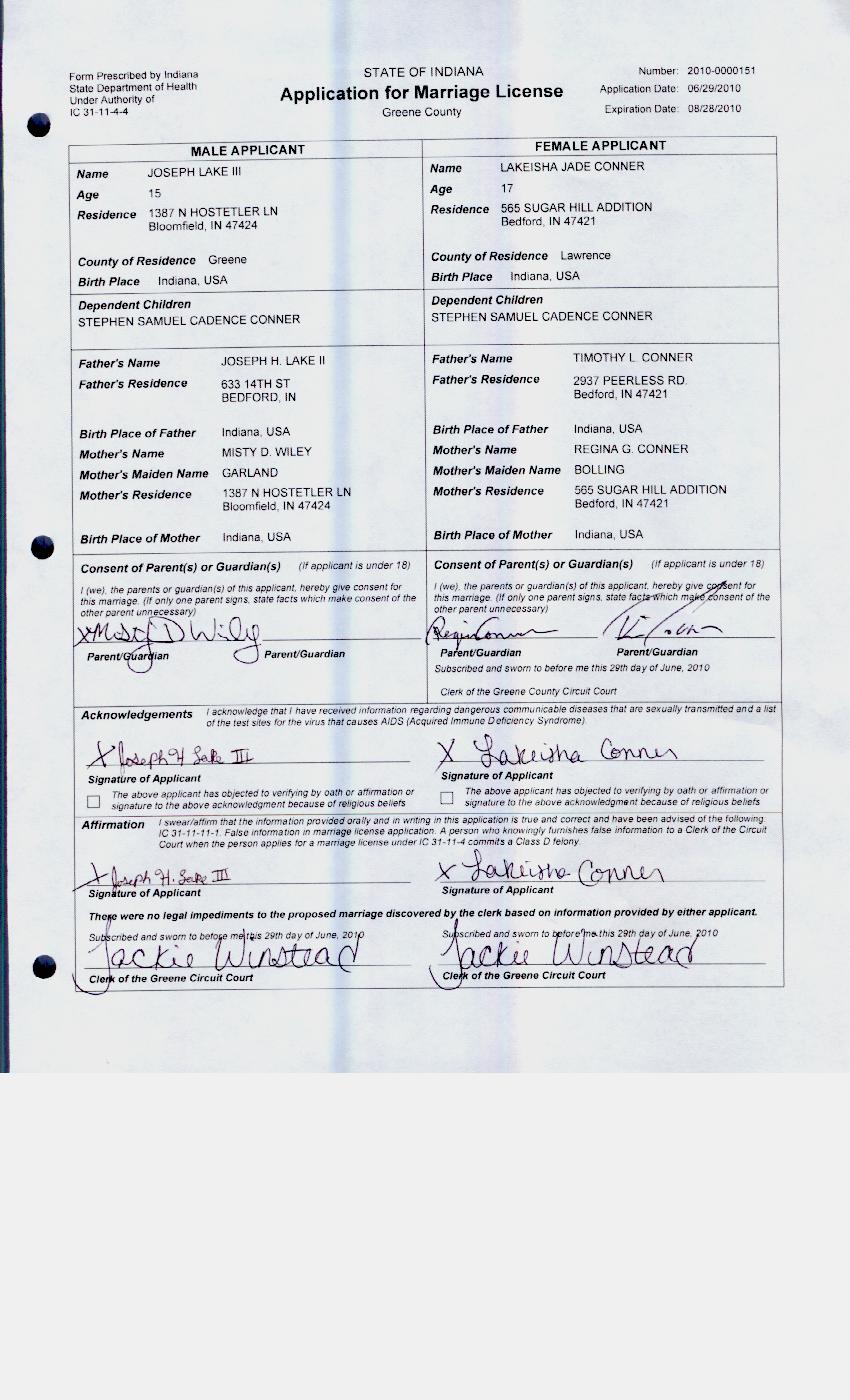 Form Prescribed by Indiana
State Department of Health
Under Authority of
IC 31-11-4-4
STATE OF INDIANA
Application for Marriage License
Greene County
Number: 2010-0000151
Application Date: 06/29/2010
Expiration Date: 08/28/2010
MALE APPLICANT
Name JOSEPH LAKE III
Age 15
Residence 1387 N HOSTETLER LN
Bloomfield, IN 47424
County of Residence Greene
Birth Place Indiana, USA
Dependent Children
STEPHEN SAMUEL CADENCE CONNER
Father's Name JOSEPH H. LAKE II
Father's Residence 633 14TH ST
BEDFORD, IN
Birth Place of Father Indiana, USA
Mother's Name MISTY D. WILEY
Mother's Maiden Name GARLAND
Mother's Residence 1387 N HOSTETLER LN
Bloomfield, IN 47424
Birth Place of Mother Indiana, USA
Consent of Parent(s) or Guardian(s) (If applicant is under 18)
I (we), the parents or guardian(s) of this applicant, hereby give consent for
this marriage. (If only one parent signs, state facts which make consent of the
other parent unnecessary)
X Misty D Wiley
Parent/Guardian Parent/Guardian
FEMALE APPLICANT
Name LAKEISHA JADE CONNER
Age 17
Residence 565 SUGAR HILL ADDITION
Bedford, IN 47421
County of Residence Lawrence
Birth Place Indiana, USA
Dependent Children
STEPHEN SAMUEL CADENCE CONNER
Father's Name TIMOTHY L. CONNER
Father's Residence 2937 PEERLESS RD.
Bedford, IN 47421
Birth Place of Father Indiana, USA
Mother's Name REGINA G. CONNER
Mother's Maiden Name BOLLING
Mother's Residence 565 SUGAR HILL ADDITION
Bedford, IN 47421
Birth Place of Mother Indiana, USA
Consent of Parent(s) or Guardian(s) (If applicant is under 18)
I (we), the parents or guardian(s) of this applicant, hereby give consent for
this marriage. (If only one parent signs, state facts which make consent of the
other parent unnecessary)
Regina Conner
Parent/Guardian Parent/Guardian
Subscribed and sworn to before me this 29th day of June, 2010
Clerk of the Greene County Circuit Court
Acknowledgements I acknowledge that I have received information regarding dangerous communicable diseases that are sexually transmitted and a list
of the test sites for the virus that causes AIDS (Acquired Immune Deficiency Syndrome).
X Joseph H Lake III X Lakeisha Conner
Signature of Applicant Signature of Applicant
The above applicant has objected to verifying by oath or affirmation or
signature to the above acknowledgment because of religious beliefs
The above applicant has objected to verifying by oath or affirmation or
signature to the above acknowledgment because of religious beliefs
Affirmation I swear/affirm that the information provided orally and in writing in this application is true and correct and have been advised of the following:
IC 31-11-11-1. False information in marriage license application. A person who knowingly furnishes false information to a Clerk of the Circuit
Court when the person applies for a marriage license under IC 31-11-4 commits a Class D felony.
X Joseph H. Lake III X Lakeisha Conner
Signature of Applicant Signature of Applicant
There were no legal impediments to the proposed marriage discovered by the clerk based on information provided by either applicant.
Subscribed and sworn to before me this 29th day of June, 2010 Subscribed and sworn to before me this 29th day of June, 2010
Jackie Winstead Jackie Winstead
Clerk of the Greene Circuit Court Clerk of the Greene Circuit Court